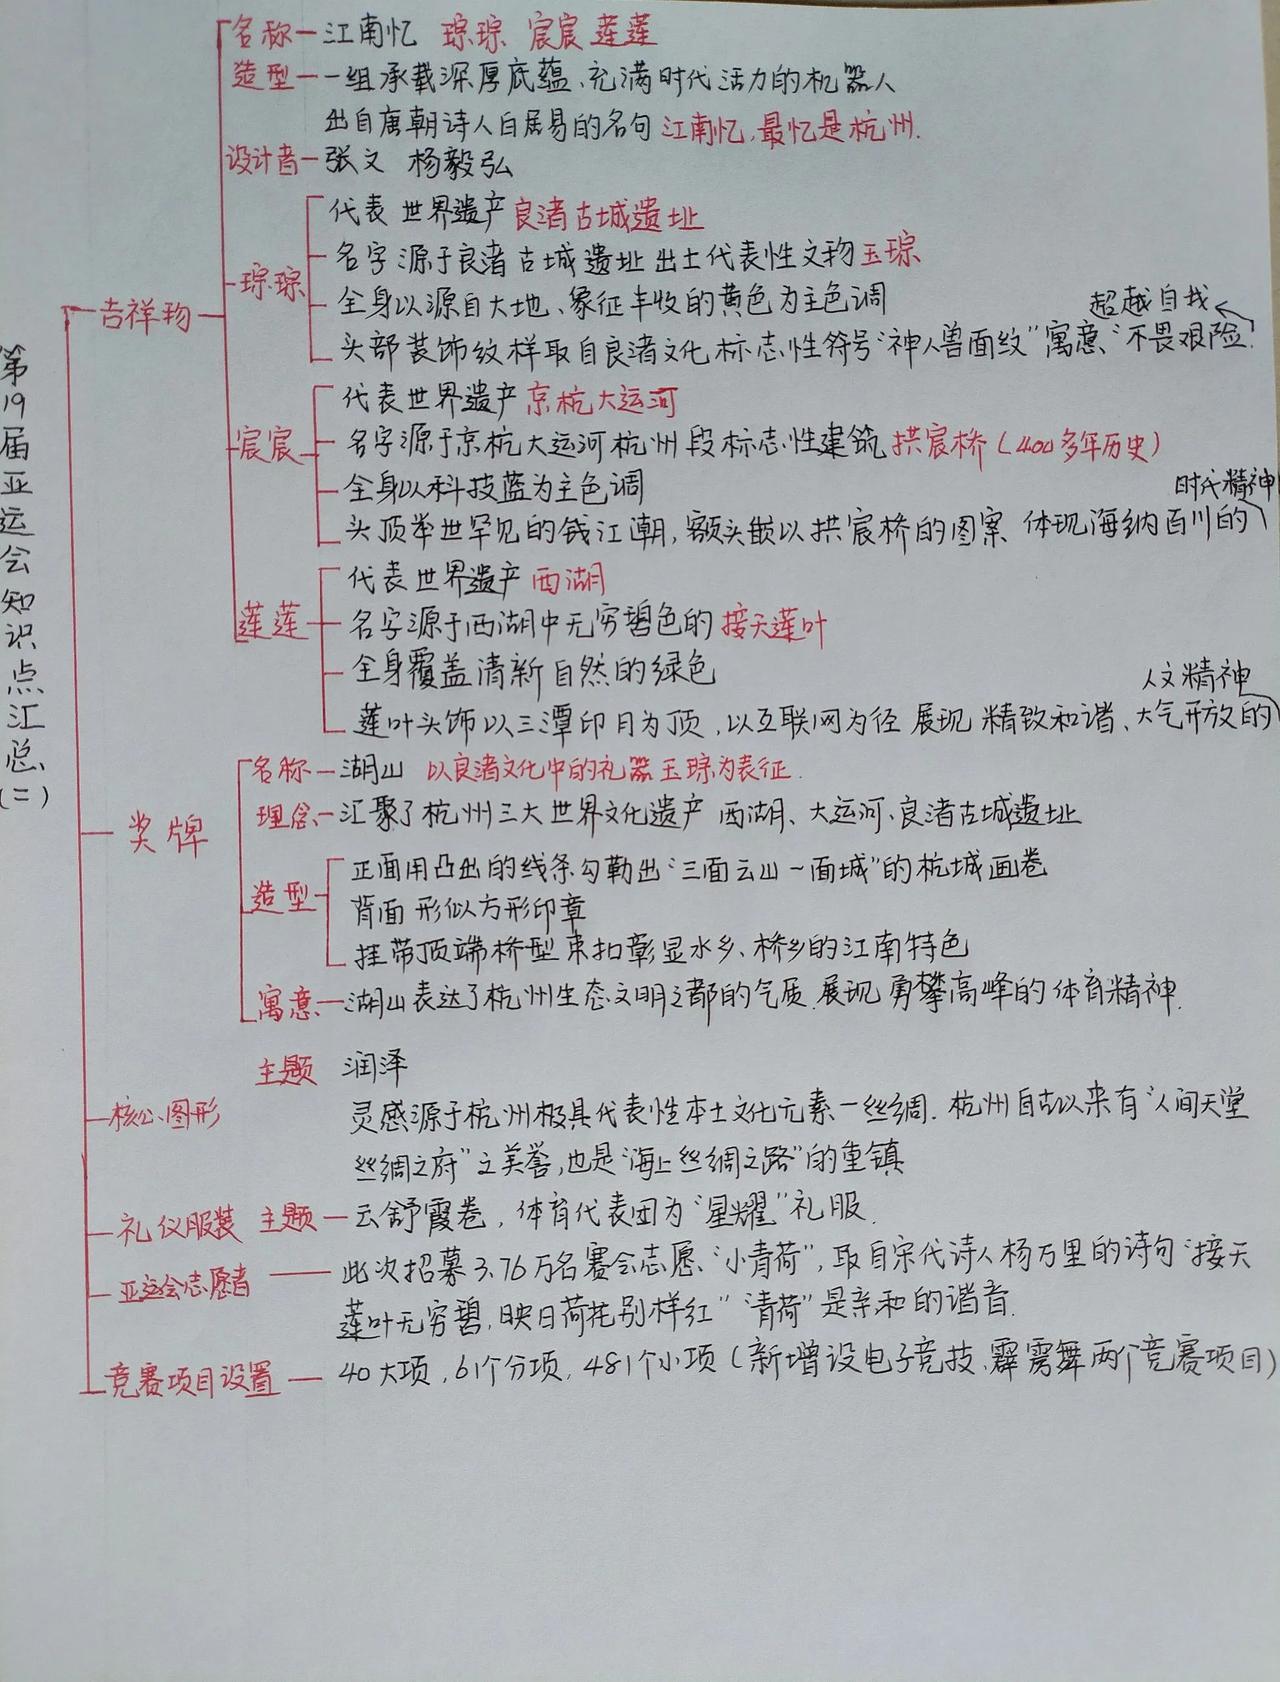 第19届亚运会知识点汇总(二)
吉祥物
名称—江南忆 琮琮 宸宸 莲莲
造型—一组承载深厚底蕴、充满时代活力的机器人
出自唐朝诗人白居易的名句 江南忆,最忆是杭州.
设计者—张文 杨毅弘
琮琮
代表 世界遗产 良渚古城遗址
名字源于良渚古城遗址出土代表性文物玉琮
全身以源自大地、象征丰收的黄色为主色调
头部装饰纹样取自良渚文化标志性符号"神人兽面纹"寓意"不畏艰险、
超越自我
宸宸
代表世界遗产 京杭大运河
名字源于京杭大运河杭州段标志性建筑 拱宸桥(400多年历史)
全身以科技蓝为主色调
头顶举世罕见的钱江潮,额头嵌以拱宸桥的图案 体现海纳百川的
时代精神
莲莲
代表世界遗产 西湖
名字源于西湖中无穷碧色的 接天莲叶
全身覆盖清新自然的绿色
莲叶头饰以三潭印月为顶,以互联网为径 展现 精致和谐、大气开放的
人文精神
奖牌
名称—湖山 以良渚文化中的礼器玉琮为表征.
理念—汇聚了杭州三大世界文化遗产 西湖、大运河、良渚古城遗址
造型
正面用凸出的线条勾勒出"三面云山一面城"的杭城画卷
背面 形似方形印章
挂带顶端桥型束扣彰显水乡、桥乡的江南特色
寓意—湖山表达了杭州生态文明之都的气质.展现 勇攀高峰的体育精神.
核心图形
主题 润泽
灵感源于杭州极具代表性本土文化元素—丝绸.杭州自古以来有"人间天堂
丝绸之府"之美誉,也是"海上丝绸之路"的重镇
礼仪服装 主题—云舒霞卷,体育代表团为"星耀"礼服.
亚运会志愿者—此次招募3.76万名赛会志愿、"小青荷",取自宋代诗人杨万里的诗句"接天
莲叶无穷碧,映日荷花别样红""青荷"是亲和的谐音.
竞赛项目设置—40大项,61个分项,481个小项(新增设电子竞技、霹雳舞两个竞赛项目)